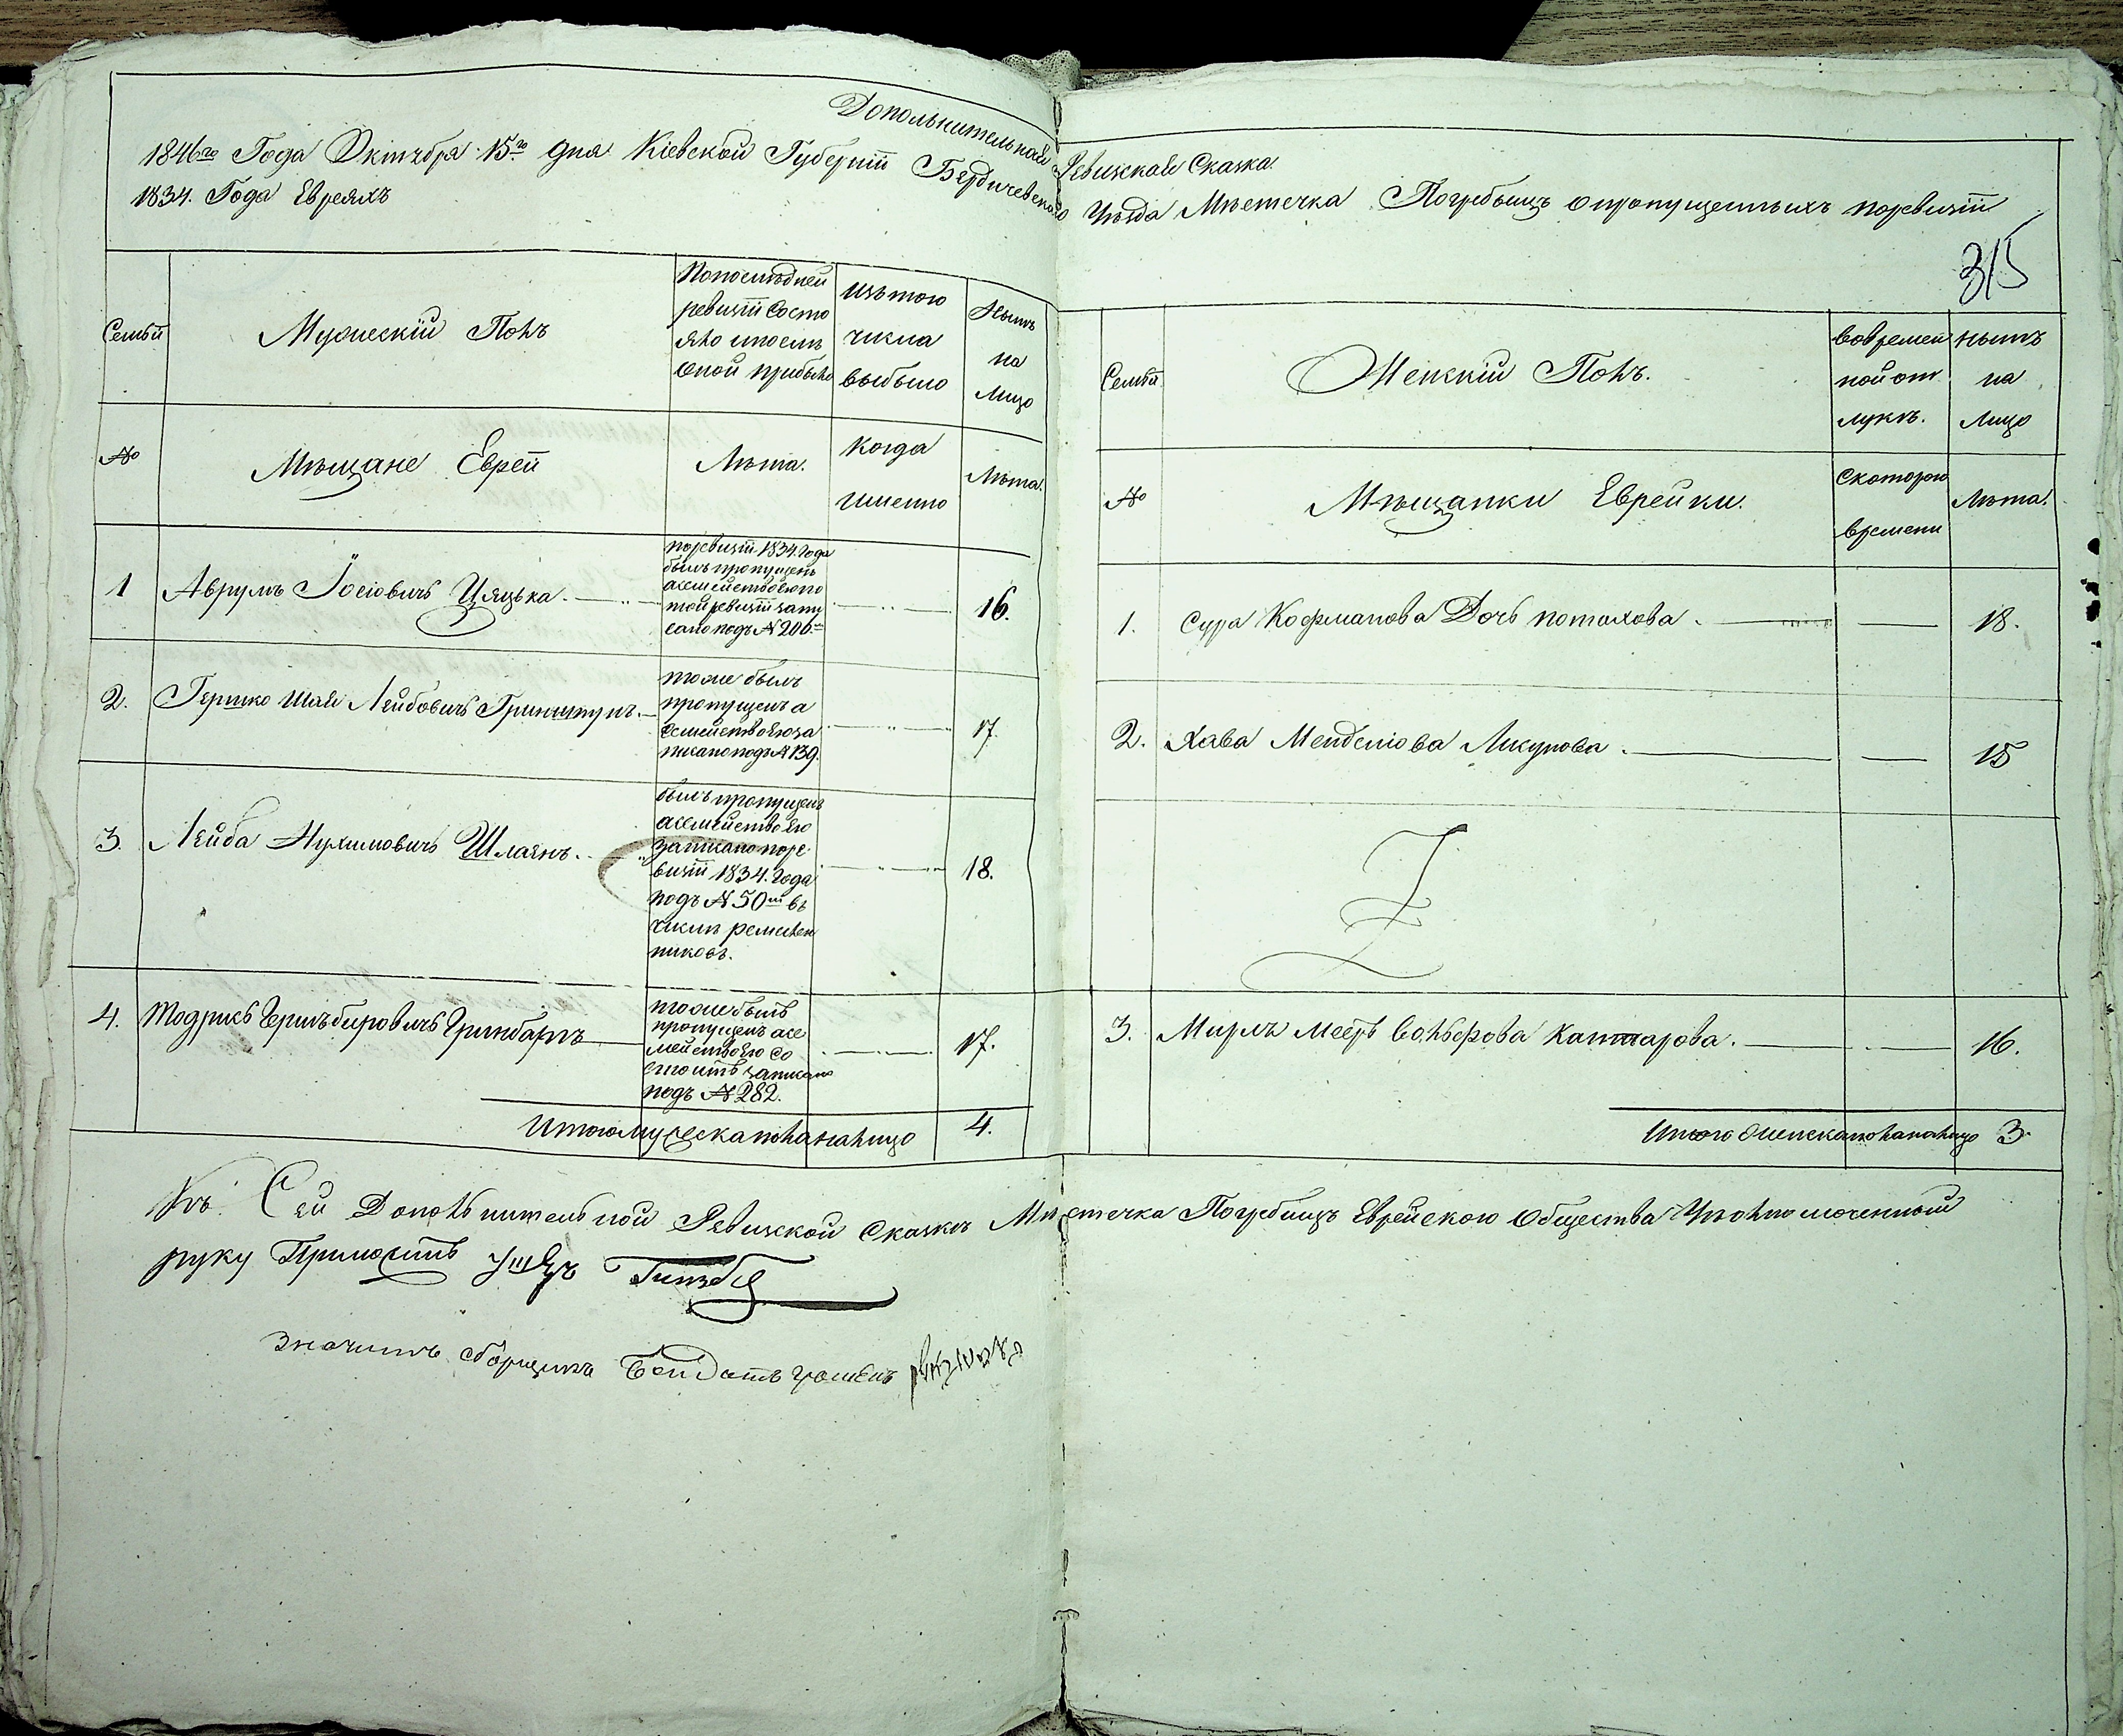 Дополнительная Ревизская Сказка.
1846го Года Октября 15го дня Кіевской Губерніи Бердичевского Уѣзда Мѣстечка Погребищъ о пропущенныхъ по ревизіи
1834. Года Евреяхъ
315
Семьи
Мужескій Полъ
По последней
ревизіи состо
яло и после
оной прибыло
Изъ того
числа
выбыло
Нынѣ
на
Лицо
№
Мѣщане Евреи
Лѣта.
Когда
именно
Лѣта.
1
Аврумъ Іосіовичъ Цяцька.
по ревизіи 1834. года
былъ пропущенъ
а семейство его по
той ревизіи запи
сано подъ №206.
16.
2.
Гершко Шая Лейбовичъ Гринштунъ.
тоже былъ
пропущенъ а
семейство его за
писано подъ №139.
17.
3.
Лейба Нухимовичъ Шлаенъ.
былъ пропущенъ
а семейство его
записано по ре-
визіи 1834. года
подъ №50мъ въ
числѣ ремеслен
никовъ.
18.
4.
Тодрикъ Гершъ Беровичъ Гринбартъ
тоже былъ
пропущенъ а се
мейство его со
стоитъ записано
подъ №282.
17.
Итого мужеска пола на лицо 4.
Семьи
Женскій Полъ.
Во времен
ной от
лучкѣ.
Нынѣ
на
Лицо
№
Мѣщанки Еврейки.
С которого
времени
Лѣта.
1. Сура Кофманова Дочь Потахова. 18.
2. Хава Менделіова Ликунова. 15
3. Мирля Мееръ Вольфова Каттарова. 16.
Итого женска пола на лицо 3.
Къ Сей Дополнительной Ревизской Сказкѣ Мѣстечка Погребищъ Еврейского Общества Уполномоченный
руку Приложилъ
Значитъ сборщикъ